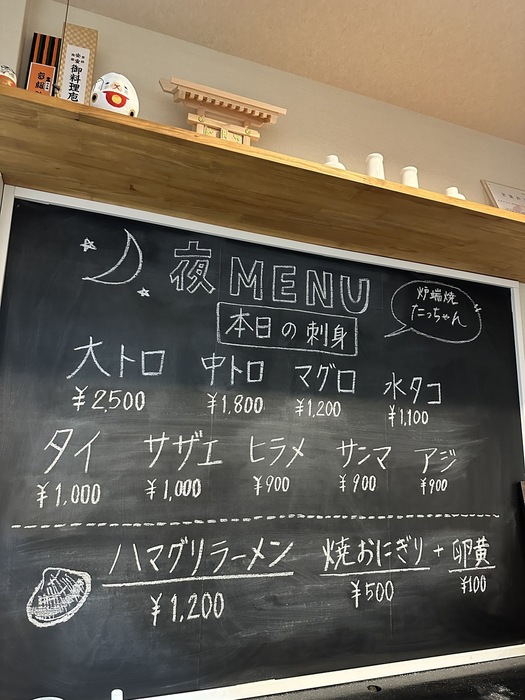 御料理庖
夜 MENU
炉端焼
たっちゃん
本日の刺身
大トロ 中トロ マグロ 水タコ
¥2,500 ¥1,800 ¥1,200 ¥1,100
タイ サザエ ヒラメ サンマ アジ
¥1,000 ¥1,000 ¥900 ¥900 ¥900
ハマグリラーメン 焼おにぎり + 卵黄
¥1,200 ¥500 ¥100